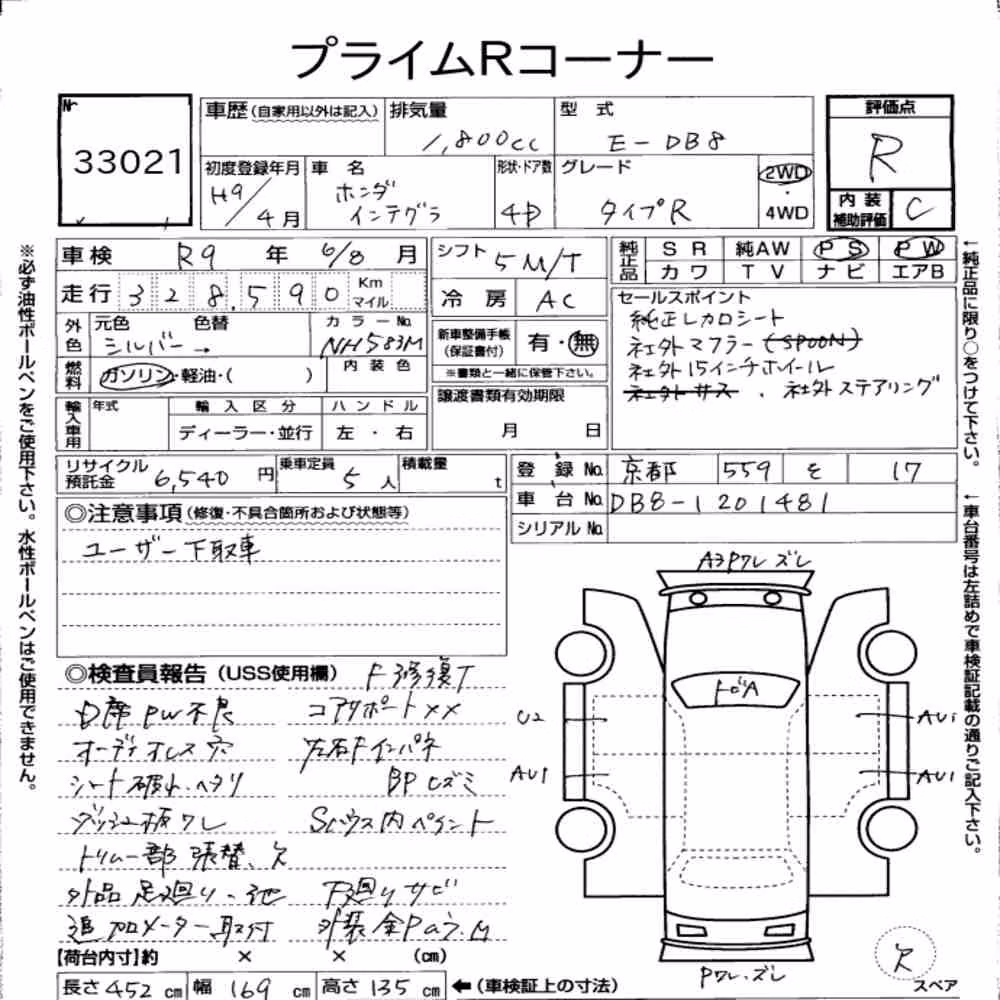 プライムRコーナー
№ 33021
車歴(自家用以外は記入) 排気量 1,800cc 型式 E-DB8 評価点 R
初度登録年月 H9/4月 車名 ホンダ インテグラ 形状・ドア数 4D グレード タイプR 2WD・4WD 内装補助評価 C
車検 R9年 6/8月 シフト 5M/T 純正品 SR 純AW PS PW
カワ TV ナビ エアB
走行 328,590 Km マイル 冷房 AC
セールスポイント
純正レカロシート
社外マフラー(SPOON)
社外15インチホイール
社外サス . 社外ステアリング
外色 元色 シルバー 色替 → カラーNo. NH583M
新車整備手帳(保証書付) 有・無
※書類と一緒に保管下さい。
燃料 ガソリン・軽油・( ) 内装色
譲渡書類有効期限 月 日
輸入車用 年式 輸入区分 ハンドル
ディーラー・並行 左・右
リサイクル預託金 6,540円 乗車定員 5人 積載量 t
登録No. 京都 559 を 17
車台No. DB8-1201481
シリアルNo.
◎注意事項(修復・不具合箇所および状態等)
ユーザー下取車
◎検査員報告(USS使用欄) F修復T
D席PW不良 コアサポート××
オーディオレス穴 左右Fインパネ
シート破れ、ヘタリ BPヒズミ
ダッシュ板ワレ Sハウス内ペイント
トリム一部張替、欠
外品足廻り、他 下廻りサビ
追加メーター取付 外装全Pのう.M
【荷台内寸】約 × × (cm)
長さ452cm 幅169cm 高さ135cm ←(車検証上の寸法)
A3Pワレズレ
トビA
U2
AU1
AU1
AU1
Pワレ.ズレ
欠
スペア
※必ず油性ボールペンをご使用下さい。水性ボールペンはご使用できません。
←純正品に限り○をつけて下さい。
←車台番号は左詰めで車検証記載の通りご記入下さい。